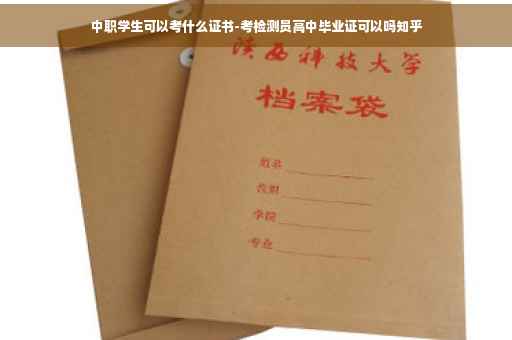 中职学生可以考什么证书-考检测员高中毕业证可以吗知乎
陕西科技大学
档案袋
姓名
学院
专业